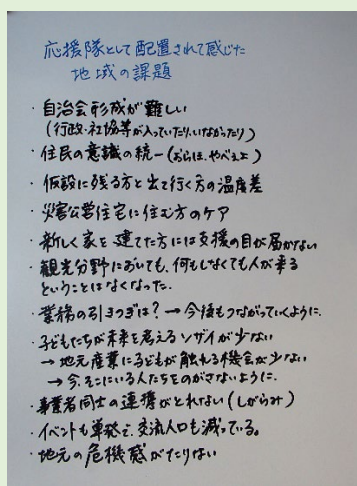 応援隊として配置されて感じた
地域の課題
・自治会形成が難しい
(行政・社協等が入っていたり、いなかったり)
・住民の意識の統一(おらほ、やべぇよ)
・仮設に残る方と出て行く方の温度差
・災害公営住宅に住む方のケア
・新しく家を建てた方には支援の目が届かない
・観光分野においても、何もしなくても人が来る
ということはなくなった。
・業務の引きつぎは?→今後もつながっていくように。
・子どもたちが未来を考えるソザイが少ない
→地元産業に子どもが触れる機会が少ない
→今、そこにいる人たちをのがさないように。
・事業者同士の連携がとれない(しがらみ)
・イベントも単発で、交流人口も減っている。
・地元の危機感がたりない